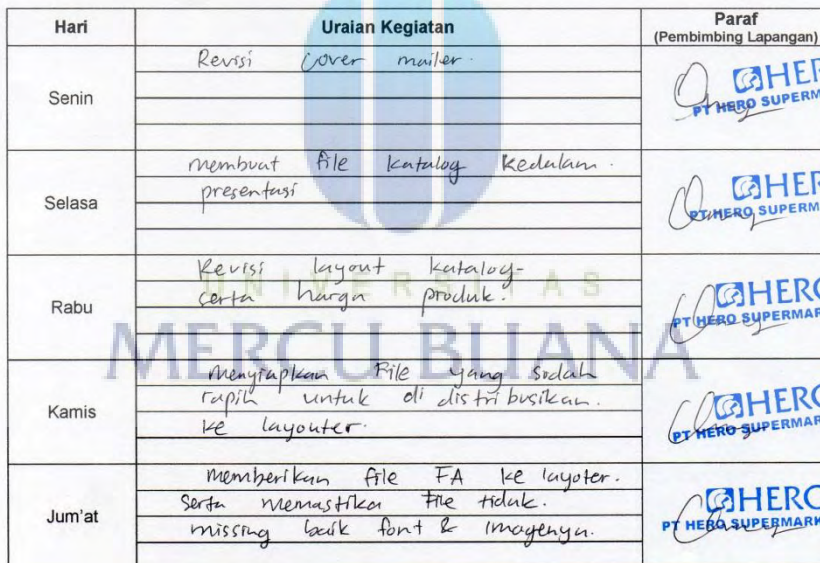 Hari Uraian Kegiatan Paraf
(Pembimbing Lapangan)
Senin
Revisi cover mailer.
HER
PT HERO SUPERM
Selasa
membuat file katalog kedalam.
presentasi
HER
PT HERO SUPERM
Rabu
Revisi layout katalog-
serta harga produk.
HERO
PT HERO SUPERMAR
UNIVERSITAS
MERCU BUANA
Kamis
menyiapkan File yang sudah
rapih untuk di distribusikan.
ke layouter.
HERO
PT HERO SUPERMAR
Jum'at
memberikan file FA ke layoter.
serta memastika file tidak.
missing baik font & imagenya.
HERO
PT HERO SUPERMARK